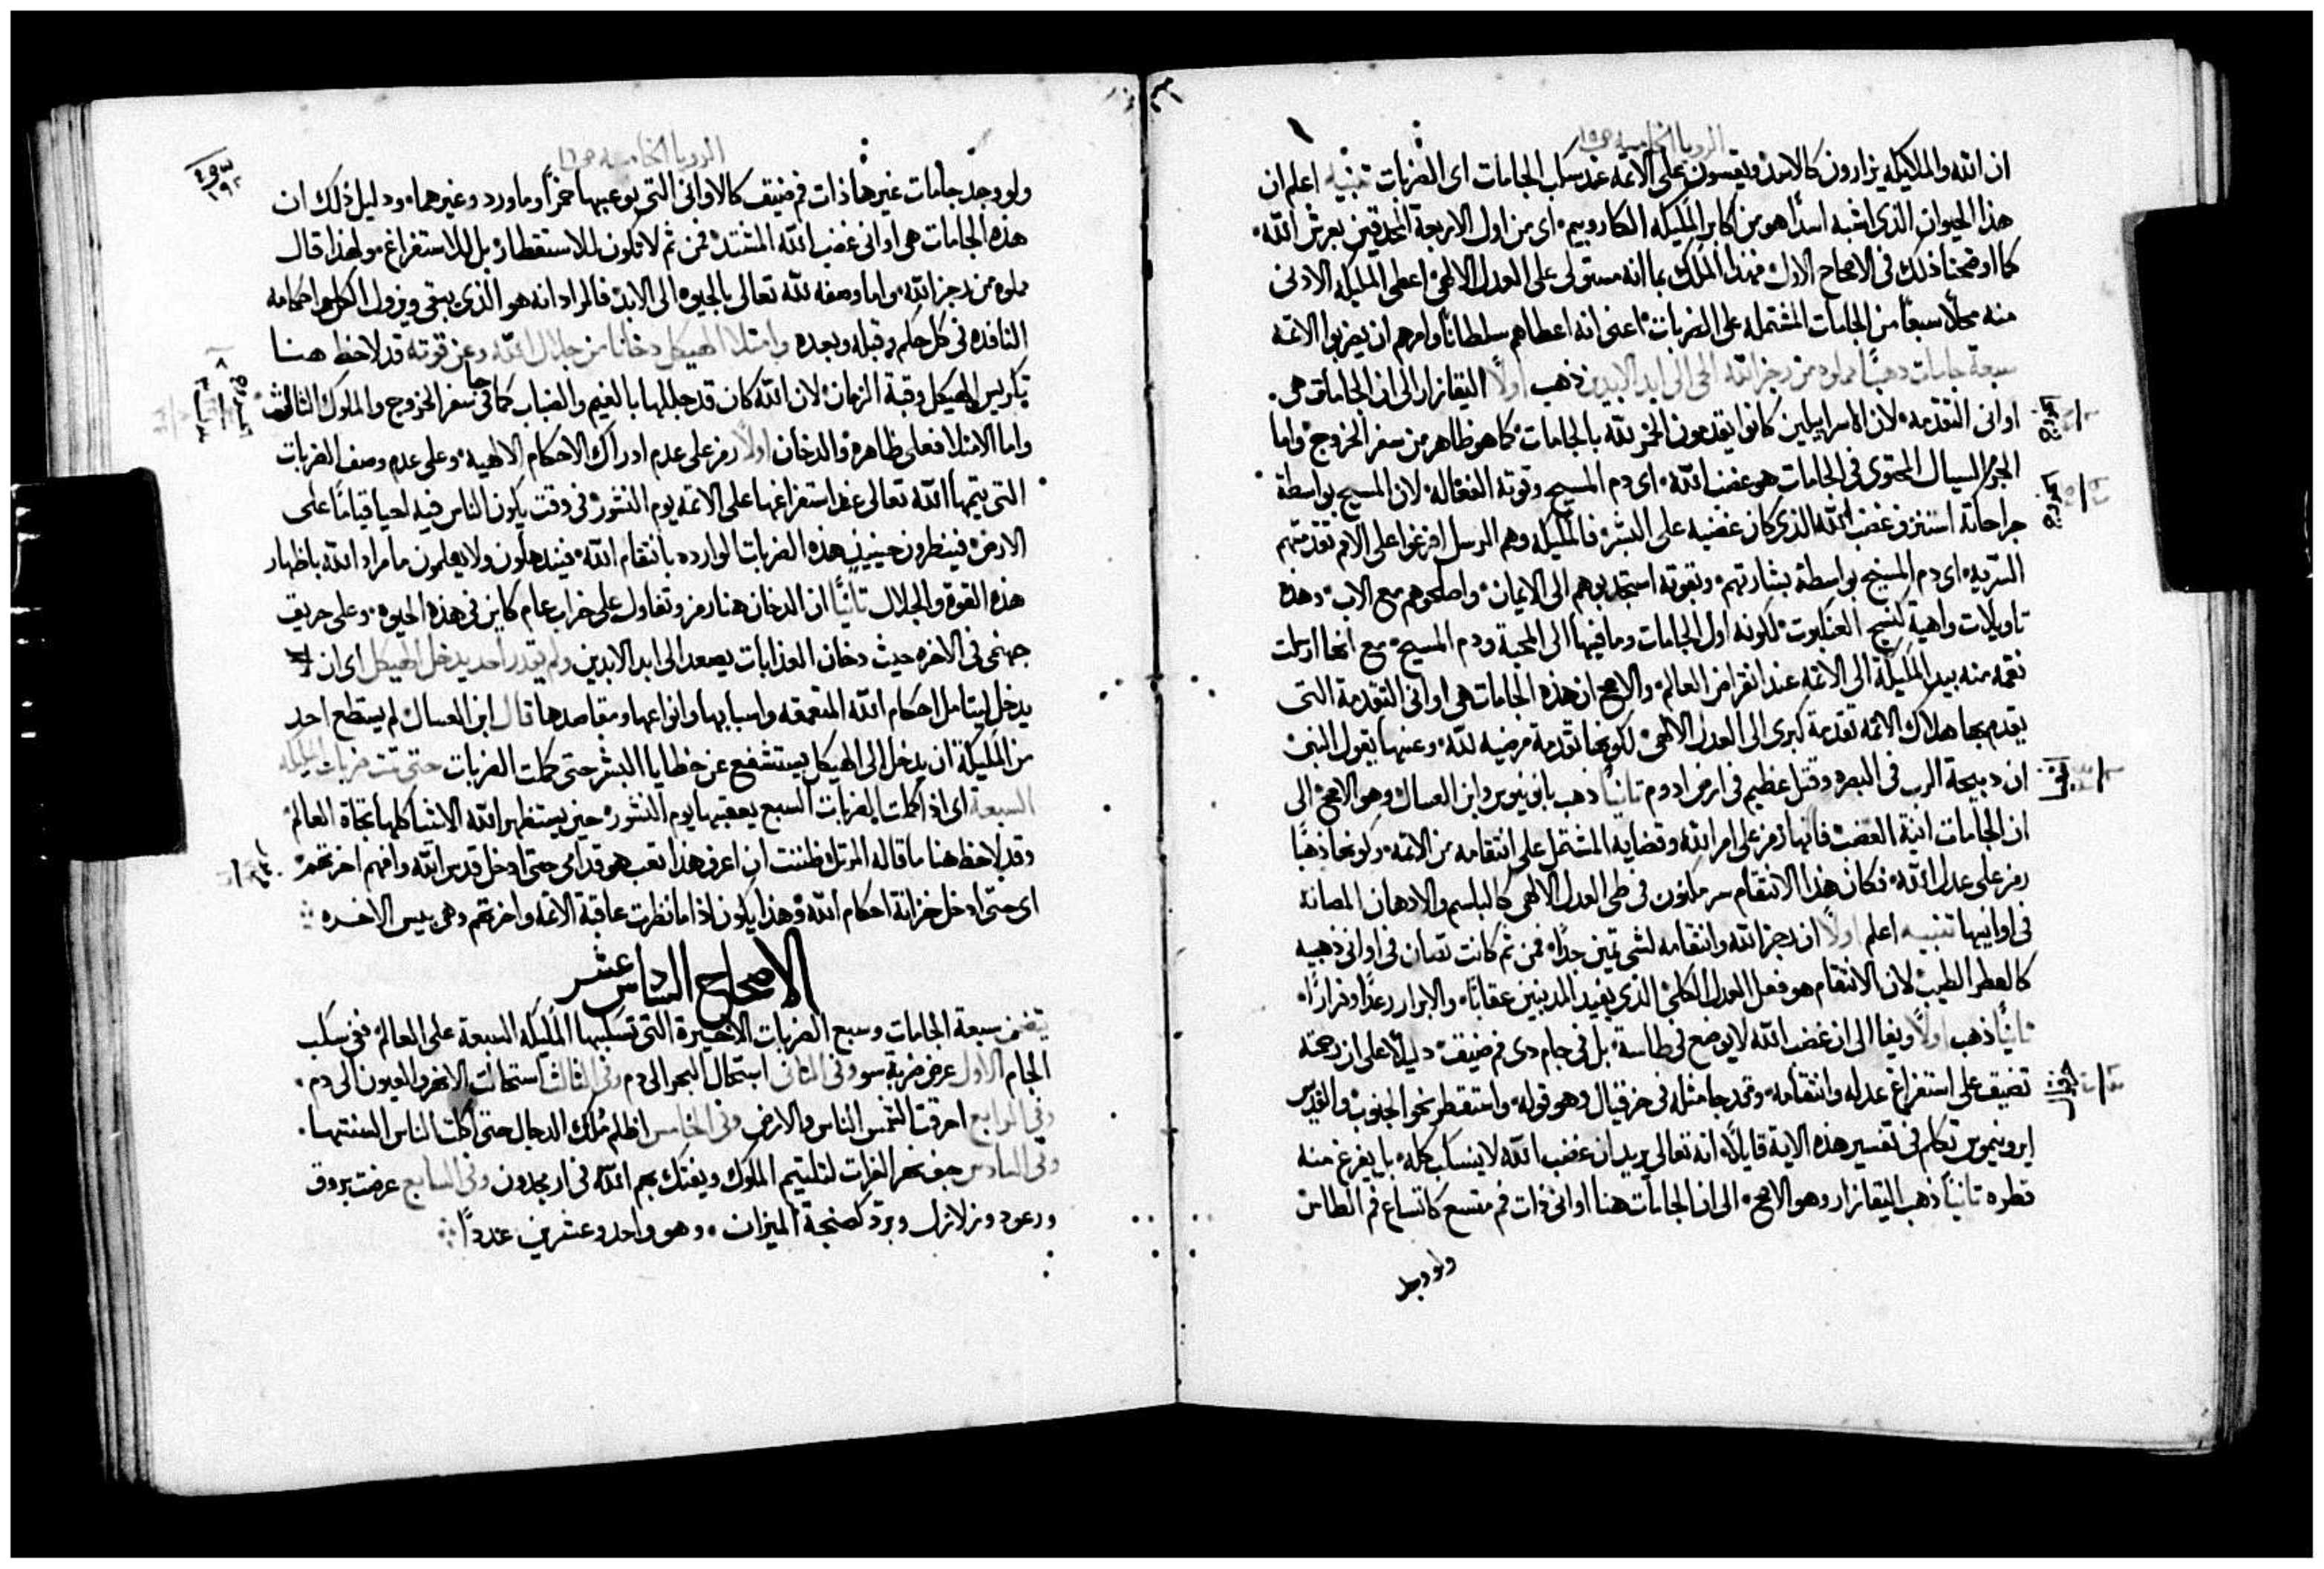 الرويا الخامسه ص١٥
ان الله والملايكه يزارون كالاسد ويقسون على الاثمه عند سكب الجامات اى الضربات تنبيه اعلم ان
هذا الحيوان الذى اشبه اسدًا هو من اكابر المليكه الكاروبيم اى من اول الاربعة المحدقين بعرش الله
كما اوضحنا ذلك فى الاصحاح الاول فهذا الملك بما انه مستولى على العدل الالهى اعطى المليكه الادنى
منه محلاً سبعًا من الجامات المشتمله على الضربات اعنى انه اعطاهم سلطانًا وامرهم ان يضربوا الاثمه
سبعة جامات ذهبًا مملوه من رجز الله الحى الى ابد الابدين ذهب اولاً اليقازار الى ان الجامات هى
اوانى التقدمه لان الاسراييليين كانوا يقدمون الخمر لله بالجامات كما هو ظاهر من سفر الخروج واما
الجرم السيال المحتوى فى الجامات هو غضب الله اى دم المسيح وقوته الفعاله لان المسيح بواسطة
جراحاته استنزف غضب الله الذى كان غضبه على البشر فالمليكه وهم الرسل افرغوا على الامم تقدمتهم
السريه اى دم المسيح بواسطة بشارتهم وبقوته استجذبوهم الى الايمان واصلحوهم مع الاب وهذه
تاويلات واهية كنسج العنكبوت لكونه اول الجامات وما فيها الى المحبة ودم المسيح مع انها ارسلت
نقمه منه بيد المليكة الى الاثمه عند انقراض العالم والاصح ان هذه الجامات هى اوانى التقدمة التى
يقدم بها هلاك الاثمه تقدمة كبرى الى العدل الالهى لكونها تقدمة مرضيه لله وعنها يقول النبى
ان دبيحة الرب فى البصره وقتل عظيم فى ارض ادوم ثانيًا ذهب بانونيوس وابن العسال وهو الاصح الى
ان الجامات انية الغضب فانها رمز على امر الله وقضايه المشتمل على انتقامه من الاثمه وكونها ذهبًا
رمز على عدل الله فكان هذا الانتقام سر مكنون فى طى العدل الالهى كالبلسم والادهان المصانه
فى اوانيها تنبيه اعلم اولاً ان رجز الله وانتقامه لشى ثمين جدًا فمن ثم كانت تصان فى اوانى ذهبيه
كالعطر الطيب لان الانتقام هو فعل العدل الكلى الذى يفيد المدنبين عقابًا والابرار رعدًا وفرارًا
ثانيًا ذهب اولاً ويغا الى ان غضب الله لا يوضع فى طاسة بل فى جام دى فم ضيق دليلاً على ان رحمته
تضيق على استفراغ عدله وانتقامه وقد جا مثله فى حزقيال وهو قوله واستقطر نحو الجنوب والقديس
ايرونيموس تكلم فى تفسير هذه الاية قايلاً انه تعالى يريد ان غضب الله لا ينسكب كله بل يفرغ منه
قطره ثانيًا ذهب اليقازار وهو الاصح الى ان الجامات هنا اوانى ذات فم متسع كاتساع فم الطاس
ولو وجد
الرويا الخامسه ص١٦
ولو وجد جامات غيرها ذات فم ضيق كالاوانى التى يوعبها خمرًا وماورد وغيرهما ودليل ذلك ان
هذه الجامات هى اوانى غضب الله المشتد فمن ثم لا تكون للاستقطار بل للاستفراغ ولهذا قال
مملوه من رجز الله واما وصفه لله تعالى بالحيوه الى الابد فالمراد انه هو الذى يبقى ويزول الكل واحكامه
النافده فى كل حكم وقبله وبعده وامتلا الهيكل دخانًا من جلال الله وعن قوته قد لاحظ هنا
تكريس الهيكل وقبة الزمان لان الله كان قد جللها بالغيم والضباب كما جا فى سفر الخروج والملوك الثالث
واما الامتلا فعلى ظاهره والدخان اولاً رمز على عدم ادراك الاحكام الالهيه وعلى عدم وصف الضربات
التى يتمها الله تعالى عند استفراغها على الاثمه يوم النشور فى وقت يكون الناس فيه احيا قيامًا على
الارض فينظرون حينيذٍ هذه الضربات الوارده بانتقام الله فيندهلون ولا يعلمون ما مراد الله باظهار
هذه القوة والجلال ثانيًا ان الدخان هنا رمز وتفاول على خراب عام كاين فى هذه الحيوه وعلى حريق
جهنمى فى الاخره حيث دخان العذابات يصعد الى ابد الابدين ولم يقدر احد يدخل الهيكل اى ان
يدخل ليتامل احكام الله المتعمقه واسبابها وانواعها ومقاصدها قال ابن العسال لم يستطع احد
من المليكة ان يدخل الى الهيكل يستشفع عن خطايا البشر حتى كملت الضربات حتى تمت ضربات المليكه
السبعة اى اذا كملت الضربات السبع يعقبها يوم النشور حين يستظهر الله الاشيا كلها تجاه العالم
وقد لاحظ هنا ما قاله المرتل ظننت ان اعرف هذا تعب هو قدامى حتى ادخل قدس الله وافهم اخرتهم
اى حتى ادخل خزانة احكام الله وهذا يكون اذا ما نظرت عاقبة الاثمه واخرتهم وهى بيس الاخره
الاصحاح السادس عشر
يتضمن سبعة الجامات وسبع الضربات الاخيرة التى تسكبها المليكه السبعة على العالم ففى سكب
الجام الاول عرض ضربة سو وفى الثانى استحال البحر الى دم وفى الثالث استحالت الانهر والعيون الى دم
وفى الرابع احرقت الشمس الناس والارض وفى الخامس اظلم مُلك الدجال حتى اكلت الناس السنتها
وفى السادس جف نهر الفرات لتلتيم الملوك ويفتك بهم الله فى ارمجدون وفى السابع عرضت بروق
ورعود وزلازل وبرد كصنجة الميزان وهو واحد وعشرين عددًا